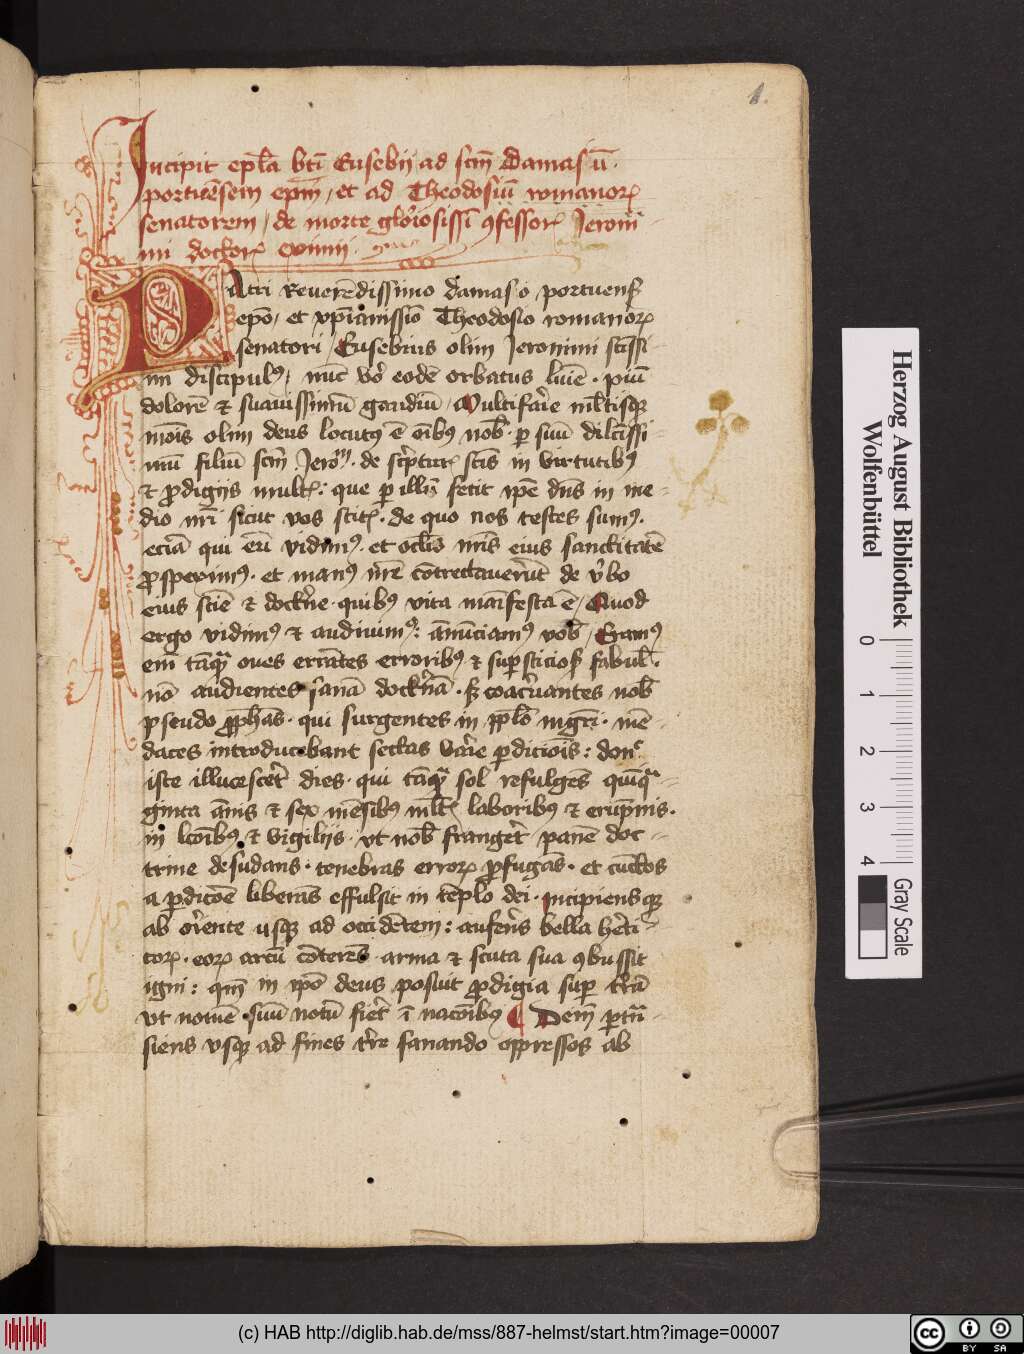 1.
Incipit epl̄a bt̄i Eusebij ad scm̄ Damasū.
portuēsem epm̄, et ad Theodosiū romanorꝝ
senatorem, de morte gloiosissi ꝯfessorꝭ Jeroni-
mi doctorꝭ eximij.
PAtri Reuerēdissimo damaso portuenẜ
epō, et xp̄ianissīo Theodosio romanorꝝ
senatori, Eusebius olim Jeronimi sctissi-
mi discipulꝰ, nūc vo eodē orbatus lumīe. piū
dolorē et suauissimū gaudiū, Multifarie ml̄tisqꝫ
mōis olim deus locutꝰ ē oībꝰ nob̄. ꝑ suū dilc̄issi-
mū filiū scm̄ Jeroᵐ. de sc̄pturꝭ sctīs in virtutibꝰ
et ꝓdigijs multꝭ: que ꝑ illū fecit xp̄e dn̄s in me-
dio nr̄i sicut vos scitꝭ. de quo nos testes sumꝰ.
eciā qui eū vidimꝰ. et oclīs nr̄is eius sanctitatē
ꝓsperimꝰ. et manꝰ nr̄e cōtrectauerūt de v̄bo
eius scīe et doctne. quibꝰ vita maīfesta ē, Quod
ergo vidimꝰ et audiuimꝰ: ānūciamꝰ vob̄, Eramꝰ
em̄ tāqꝫ oues errātes erroribꝰ et suꝑsticioẜ fabul̄.
nō audientes sanā doctnā. sꝫ coac̄uantes nob̄
pseudo ꝓphās. qui surgentes in pp̄lō nigri. mē-
daces introducebant sectas varie ꝑdicioīs: donᶜ
iste illucescet̄ dies. qui tāqꝫ sol refulgēs quīqᵃ-
ginta ānis et sex mēsibꝰ ml̄tꝭ laboribꝰ et erūpnis.
in lcōibꝰ et vigilijs. vt nob̄ franget̄ panē doc-
trine desudans. tenebras errorꝝ ꝓfugās. et cūctos
a ꝑdicōe liberās effulsit in tēplo dei. incipiensqꝫ
ab oriente usqꝫ ad occidētem: auferēs bella heti-
corꝝ. eorꝝ arcū cōterēs. arma et scuta sua ꝯbussit
igni: qm̄ in xp̄o deus posuit ꝓdigia suꝑ trā
vt nomē suū notū fiet̄ ī nacōibꝰ ¶ Dem̄ ꝑtrā-
siens vsqꝫ ad fines tr̄e sanando oppressos ab
Herzog August Bibliothek
Wolfenbüttel
0 1 2 3 4
Gray Scale
(c) HAB http://diglib.hab.de/mss/887-helmst/start.htm?image=00007
cc BY SA